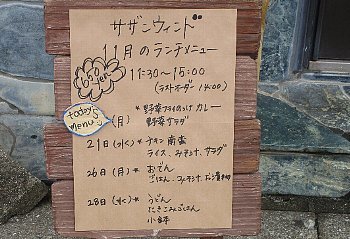 サザンウィンド
11月のランチメニュー
1050 yen
11:30～15:00
(ラストオーダー 14:00)
today's menu
(月) * 野菜フライのっけ カレー
野菜サラダ
21日(水)* チキン南蛮
ライス、みそ汁、サラダ
26日(月)* おでん
ごはん、
28日(水)* うどん
たきこみごはん
小鉢